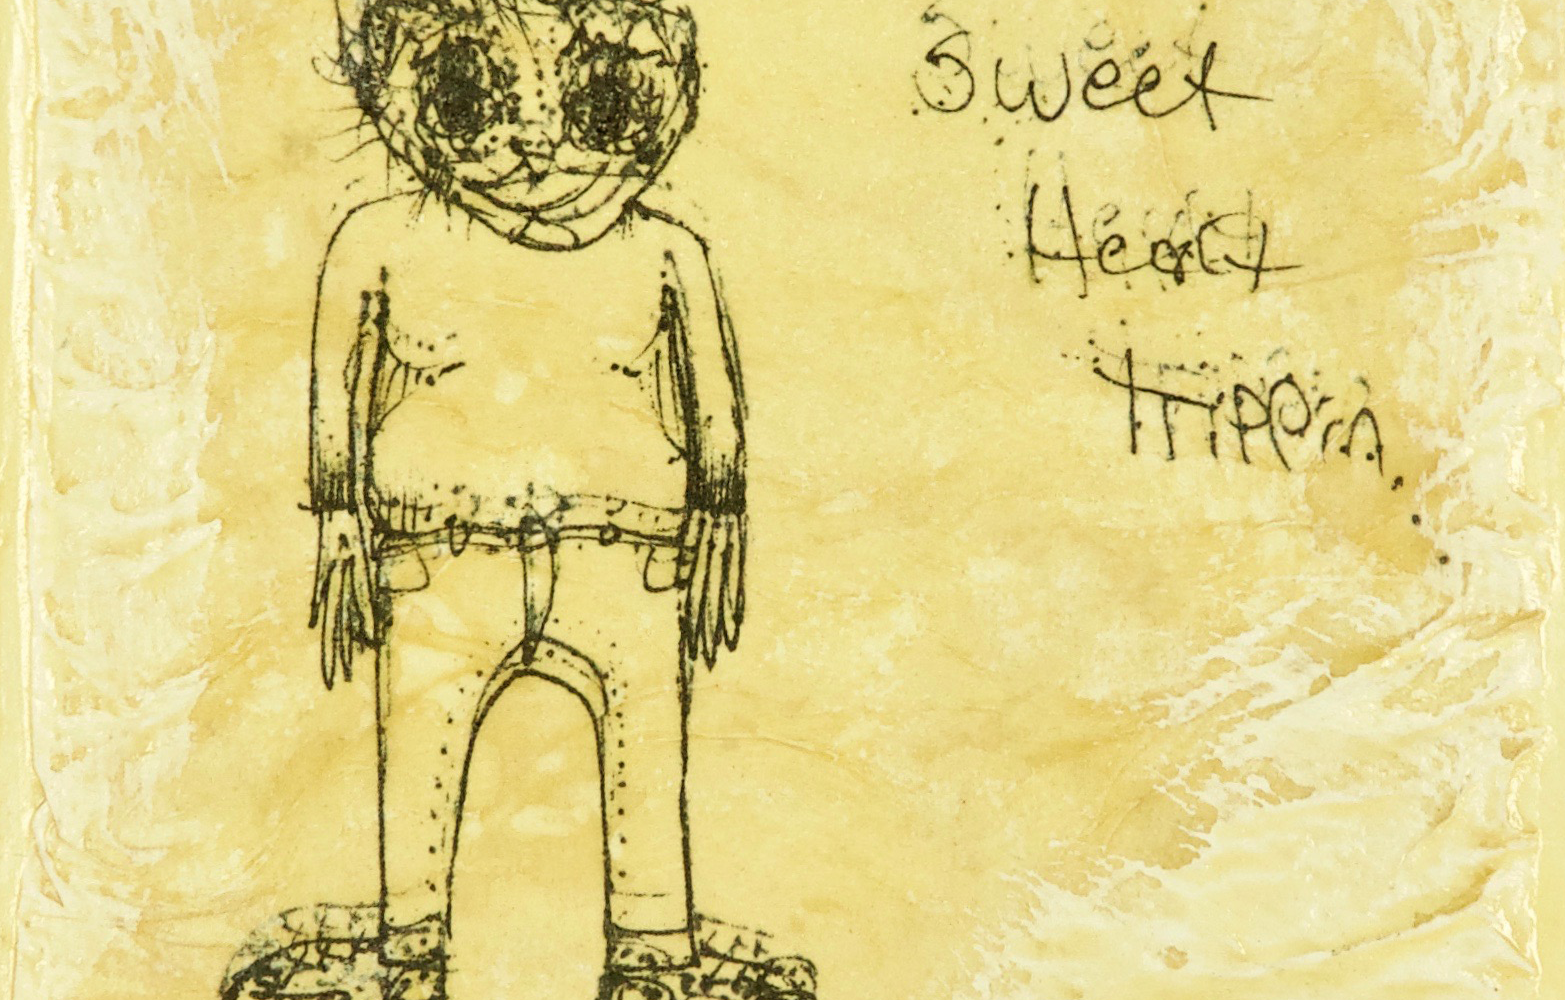 Sweet
Heart
Trippin